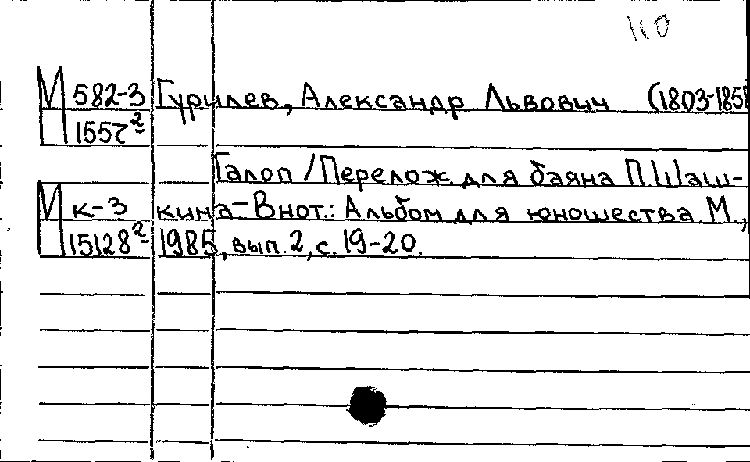 110
М 582-3 Гурилев, Александр Львович (1803-1858
1557²
Галоп / Перелож для баяна П.Шаш-
М к-3 кина-В нот.: Альбом для юношества М.,
15128² 1985, вып. 2, с. 19-20.